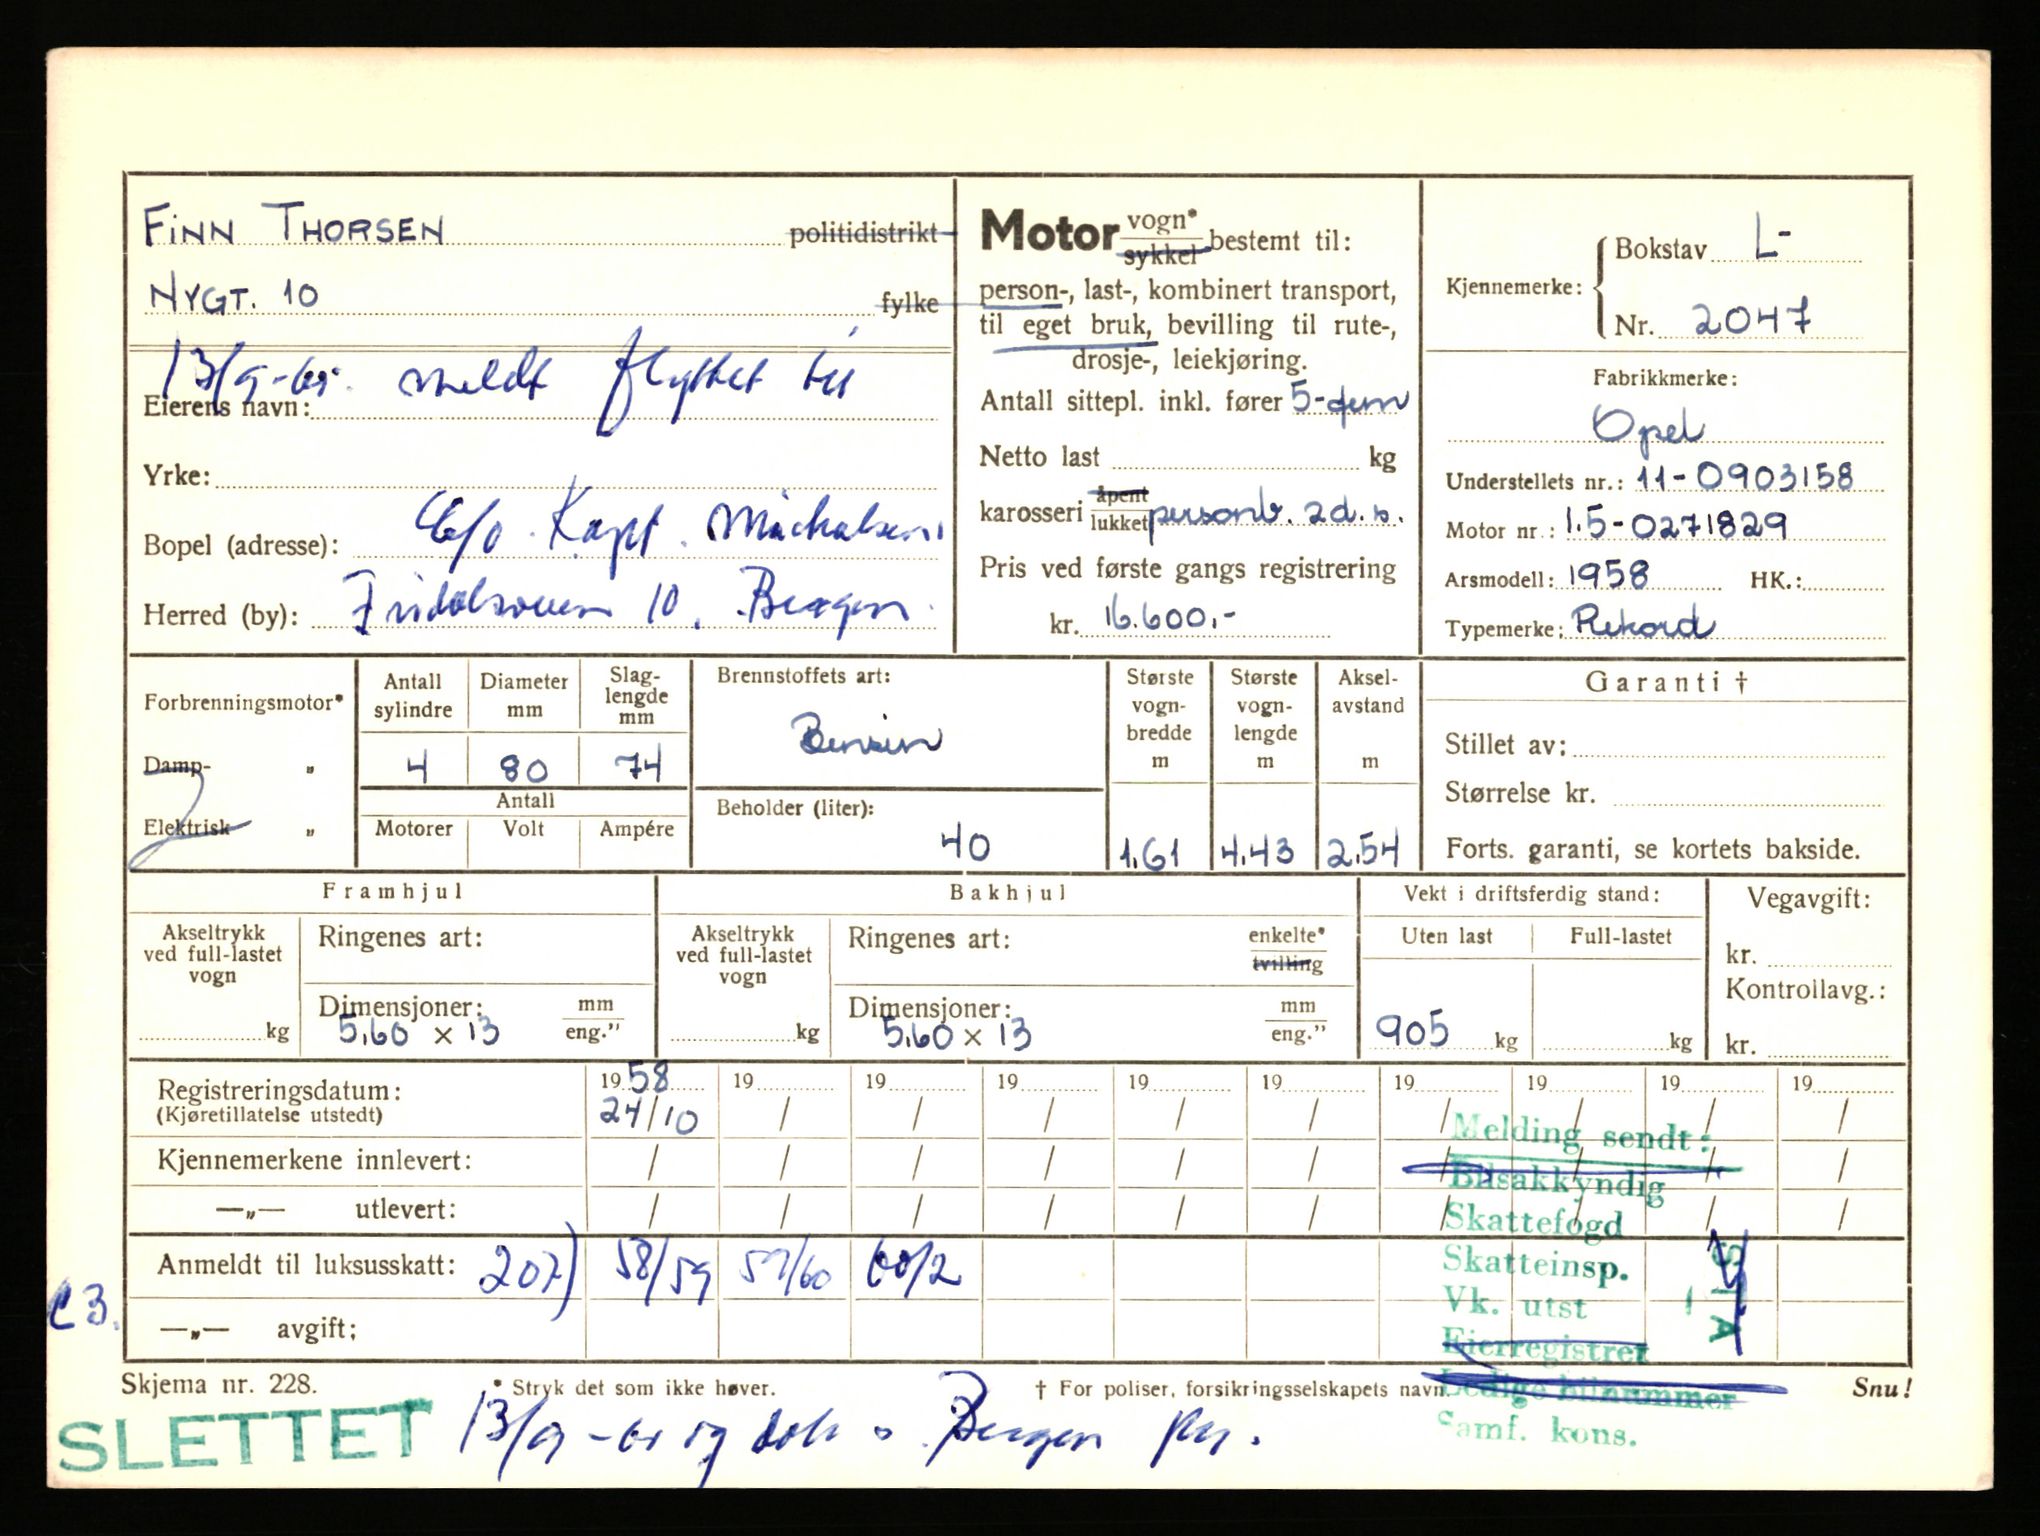 FINN THORSEN politidistrikt
NYGT. 10 fylke
13/9-65. meldt flyttet til
Eierens navn:
Yrke:
Bopel (adresse): C/o Kapt. Michalsen
Herred (by): 10, Bergen.
Motor vogn* sykkel bestemt til:
person-, last-, kombinert transport,
til eget bruk, bevilling til rute-,
drosje-, leiekjøring.
Antall sittepl. inkl. fører 5-fem
Netto last kg
karosseri åpent lukket personb. 2d.s.
Pris ved første gangs registrering
kr. 16.600,-
Kjennemerke: Bokstav L-
Nr. 2047
Fabrikkmerke:
Opel
Understellets nr.: 11-0903158
Motor nr.: 1.5-0271829
Arsmodell: 1958 HK.:
Typemerke: Rekord
Forbrenningsmotor*
Damp- "
Elektrisk "
Antall sylindre
Diameter mm
Slag-lengde mm
4 80 74
Antall
Motorer Volt Ampére
Brennstoffets art:
Bensin
Beholder (liter):
40
Største vogn-bredde m
Største vogn-lengde m
Aksel-avstand m
1,61 4,43 2,54
Garanti †
Stillet av:
Størrelse kr.
Forts. garanti, se kortets bakside.
Framhjul
Akseltrykk ved full-lastet vogn
kg
Ringenes art:
Dimensjoner: mm
5,60 x 13 eng."
Bakhjul
Akseltrykk ved full-lastet vogn
kg
Ringenes art: enkelte*
tvilling
Dimensjoner: mm
5,60 x 13 eng."
Vekt i driftsferdig stand:
Uten last Full-lastet
905 kg kg
Vegavgift:
kr.
Kontrollavg.:
kr.
Registreringsdatum: 1958 19 19 19 19 19 19 19 19 19
(Kjøretillatelse utstedt) 24/10 / / / / / / / / /
Kjennemerkene innlevert: / / / / / / / / / /
—„— utlevert: / / / / / / / / / /
Anmeldt til luksusskatt: 207) 58/59 59/60 60/2
C3.
—„— avgift;
Melding sendt:
Bilsakkyndig
Skattefogd
Skatteinsp.
Vk. utst
Eierregistret
Ledige bilnummer
Samf. kons.
Skjema nr. 228. * Stryk det som ikke høver. † For poliser, forsikringsselskapets navn. Snu!
SLETTET 13/9-65 Bergen